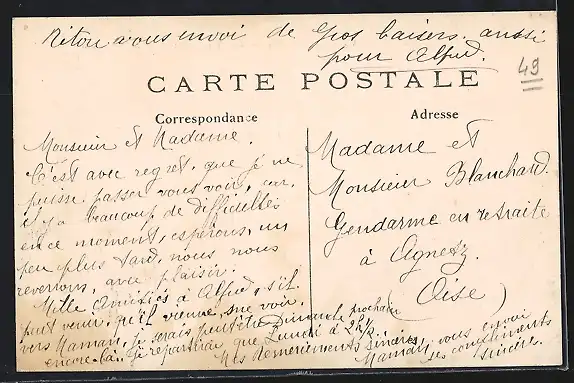 Ritou vous envoi de gros baisers. aussi
pour Alfred.
49
CARTE POSTALE
Correspondance
Monsieur et Madame.
C'est avec regret, que je ne
puisse passer vous voir, car,
il y a beaucoup de difficultés
en ce moment, espérons, un
peu plus tard, nous nous
reverrons, avec plaisir.
Mille Amitiés à Alfred, s'il
peut venir, qu'il vienne, me voir,
vers Maman, je serais peut-être Dimanche prochain
encore là. Je repartirai que Lundi à 2h1/2.
Mes Remerciements sincères,
Maman, vous envoi
ses compliments
sincères.
Adresse
Madame et
Monsieur Blanchard
Gendarme en retraite
à Agnetz.
(Oise)